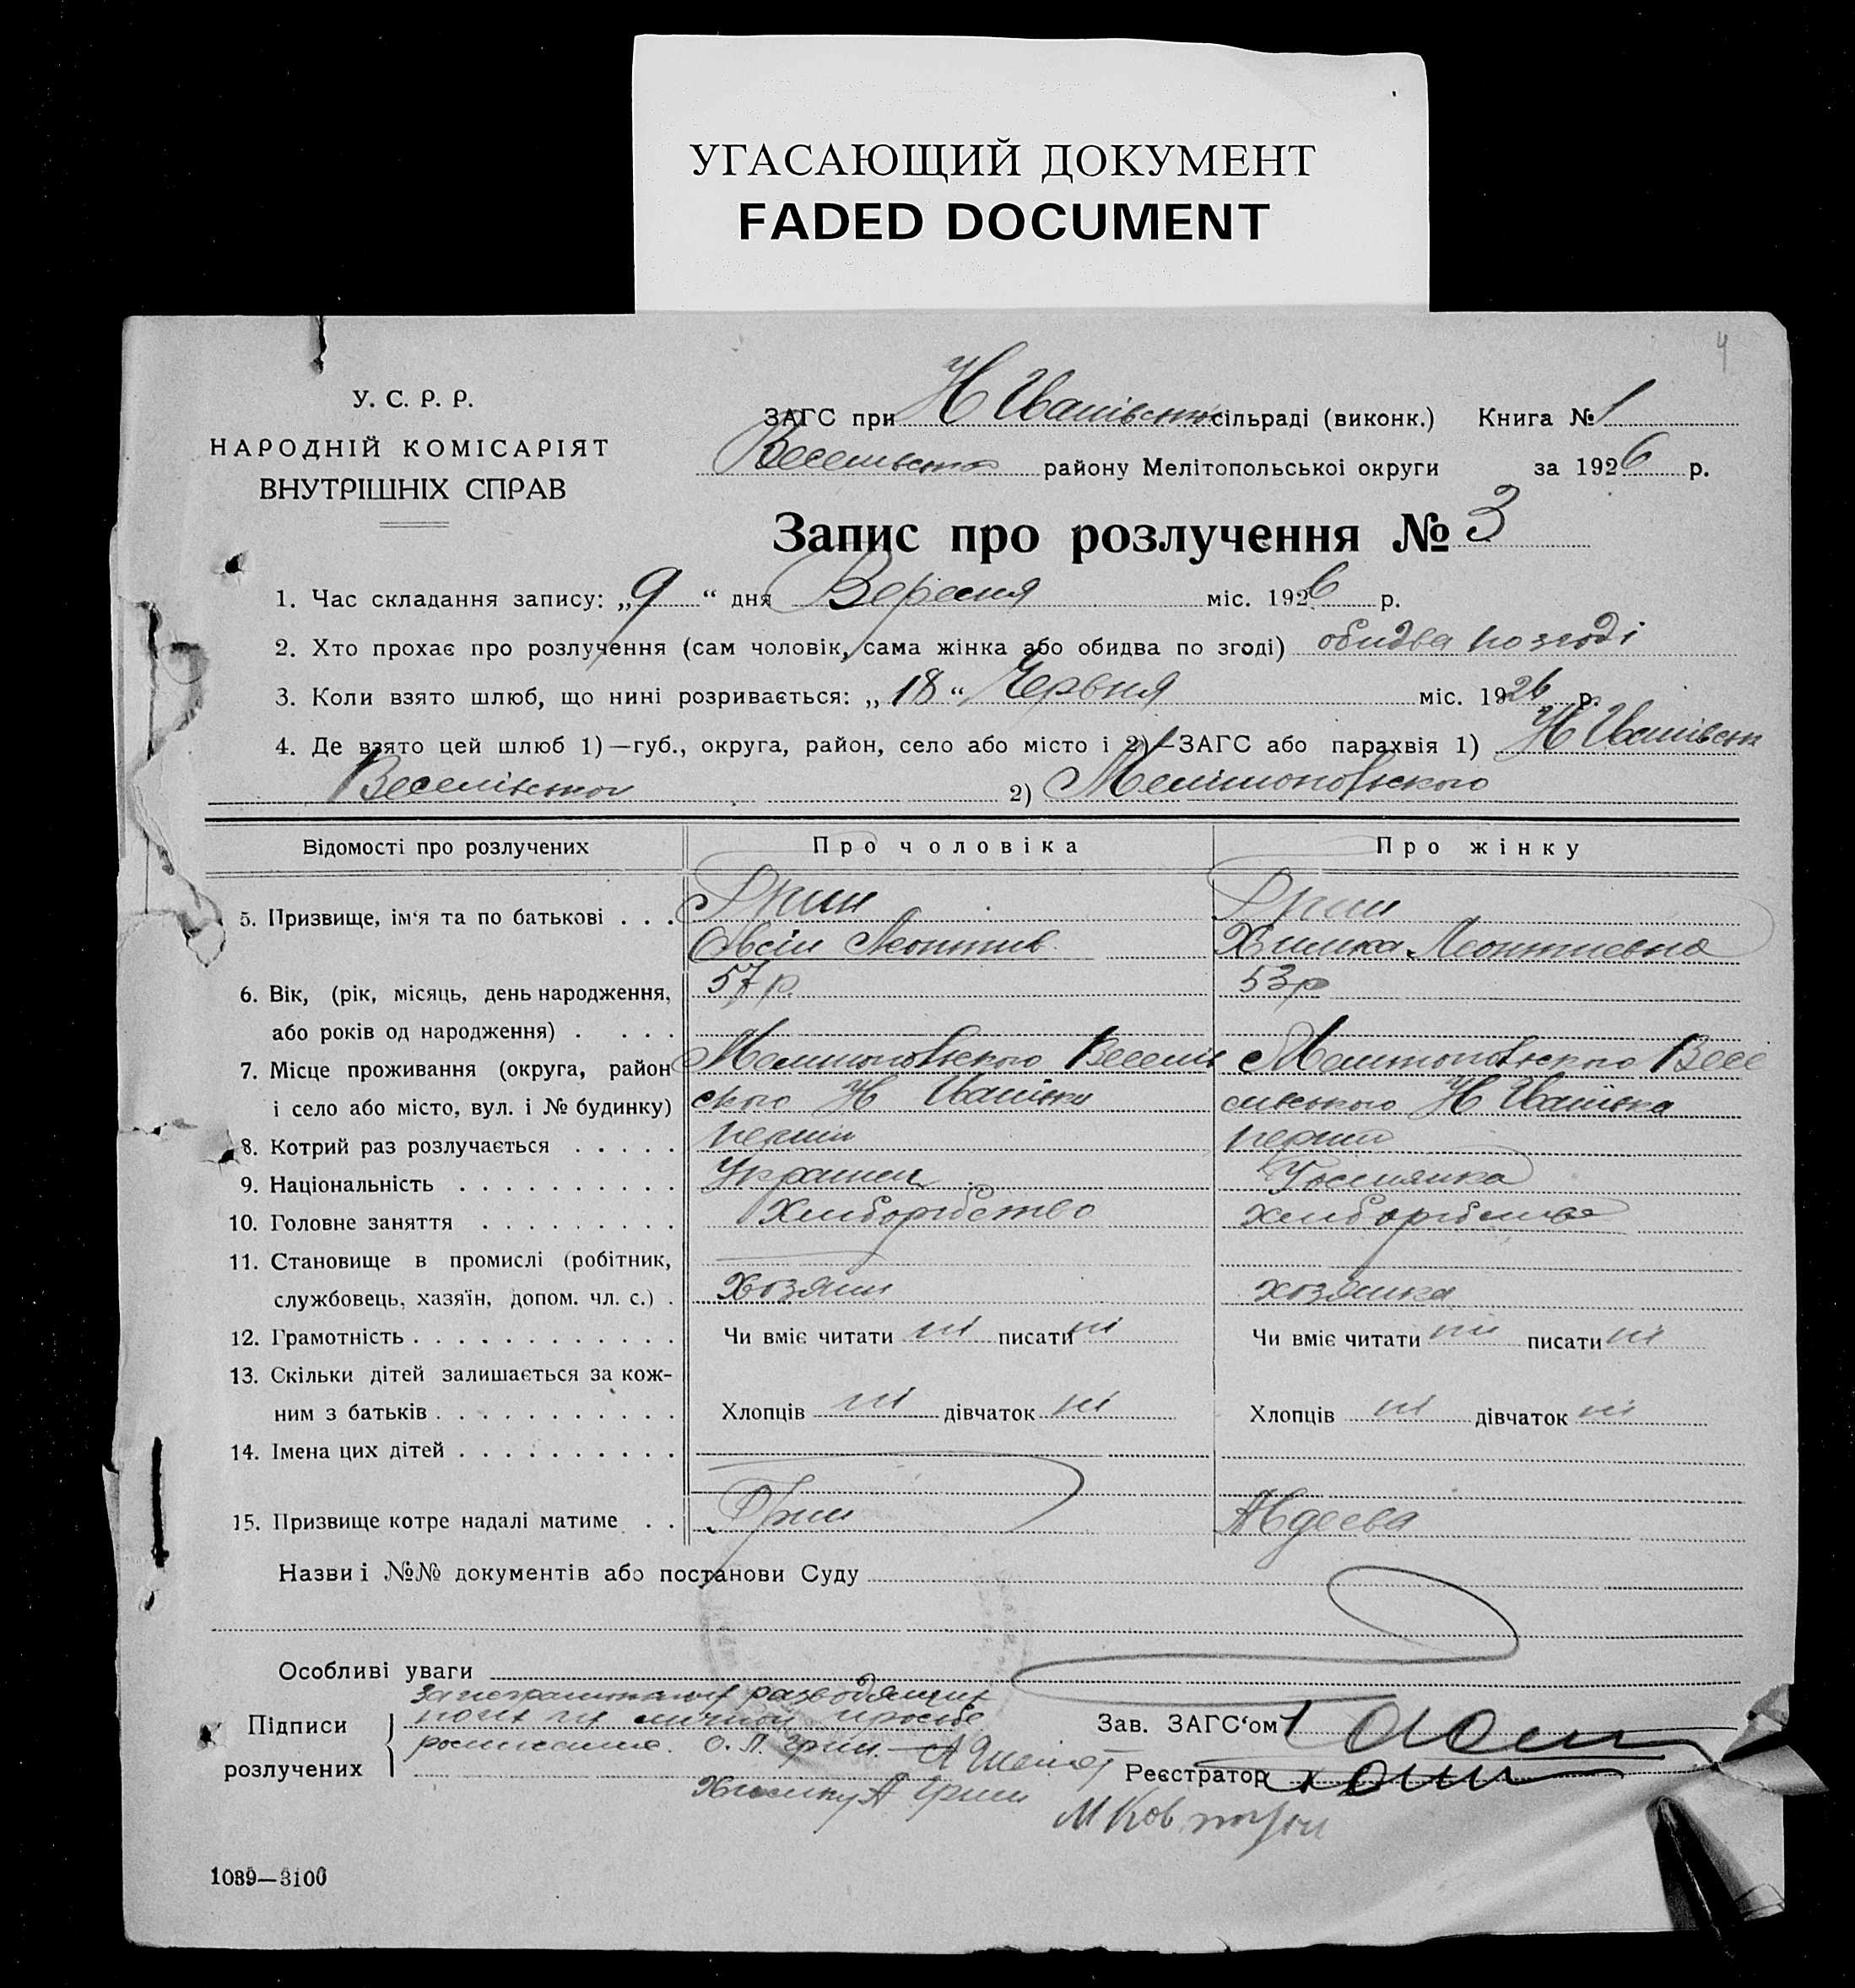 УГАСАЮЩИЙ ДОКУМЕНТ
FADED DOCUMENT
4
У. С. Р. Р.
НАРОДНІЙ КОМІСАРІЯТ
ВНУТРІШНІХ СПРАВ
ЗАГС при Н Іванівськ сільраді (виконк.) Книга № 1
Веселівсько району Мелітопольської округи за 1926 р.
Запис про розлучення № 3
1. Час складання запису: „9“ дня Вересня міс. 1926 р.
2. Хто прохає про розлучення (сам чоловік, сама жінка або обидва по згоді) обидва по згоді
3. Коли взято шлюб, що нині розривається: „18“ Червня міс. 1926 р.
4. Де взято цей шлюб 1)—губ., округа, район, село або місто і 2)—ЗАГС або парахвія 1) Н Іванівськ
Веселівського 2) Мелітопольского
Відомості про розлучених Про чоловіка Про жінку
5. Призвище, ім‘я та по батькові . . . Ярин Ярин
Овсій Леонтів Химка Леонтиевна
6. Вік, (рік, місяць, день народження, 57 р. 53 р
або років од народження) . . . .
7. Місце проживання (округа, район Мелитопольского Веселів Мелитопольского Весе
і село або місто, вул. і № будинку) ского Н Іванівки лівського Н Іванівка
8. Котрий раз розлучається . . . . . перший перший
9. Національність . . . . . . . . . . Українец
10. Головне заняття . . . . . . . . . Хліборобство хліборобство
11. Становище в промислі (робітник,
службовець, хазяїн, допом. чл. с.) . Хозяин хозяйка
12. Грамотність . . . . . . . . . . . . Чи вміє читати ні писати ні Чи вміє читати ні писати ні
13. Скільки дітей залишається за кож-
ним з батьків . . . . . . . . . . . Хлопців ні дівчаток ні Хлопців ні дівчаток ні
14. Імена цих дітей . . . . . . . . . .
15. Призвище котре надалі матиме . . Ярин Авдеева
Назви і №№ документів або постанови Суду
Особливі уваги
За неграмотных разводящих
Підписи личной просьбе Зав. ЗАГС‘ом
О. Л. Ярин.
розлучених Реєстратор
Ярин
1039—3100